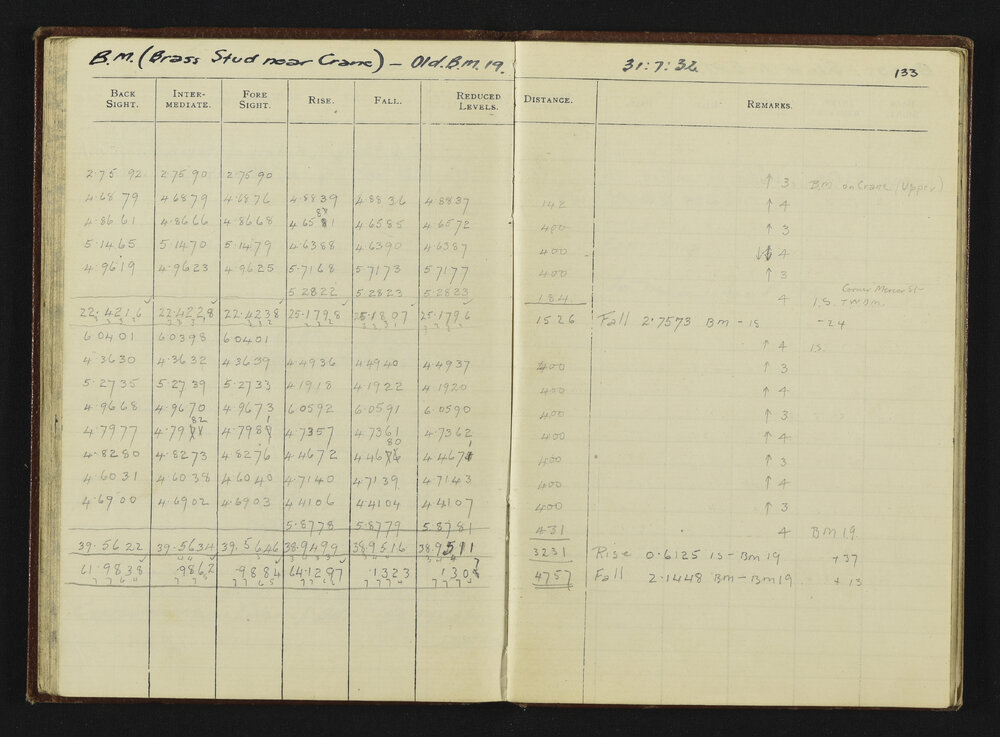 B.M. (Brass Stud near Crane) – Old. B.M. 19. 31:7:32
133
BACK SIGHT. INTER-MEDIATE. FORE SIGHT. RISE. FALL. REDUCED LEVELS. DISTANCE. REMARKS.
2.7592 2.7590 2.7590 ↑ 3 B.M. on Crane (Upper)
4.6879 4.6879 4.6876 4.8839 4.8836 4.8837 142 ↑ 4
4.8661 4.8666 4.8668 4.6581 4.6585 4.6572 400 ↑ 3
5.1465 5.1470 5.1479 4.6388 4.6390 4.6387 400 4
4.9619 4.9623 4.9625 5.7168 5.7173 5.7177 400 ↑ 3
5.2822 5.2823 5.2823 184 4 Corner Mercer St
22.4216 22.4228 22.4238 25.1798 25.1807 25.1796 1526 Fall 2.7573 BM – 1S –24
6.0401 6.0398 6.0401 ↑ 4 1S.
4.3630 4.3632 4.3639 4.4936 4.4940 4.4937 400 ↑ 3
5.2735 5.2739 5.2733 4.1918 4.1922 4.1920 400 ↑ 4
4.9668 4.9670 4.9673 6.0592 6.0591 6.0590 400 ↑ 3
4.7977 4.7982 4.7981 4.7357 4.7361 4.7362 400 ↑ 4
4.8280 4.8273 4.8276 4.4672 4.4680 4.4671 400 ↑ 3
4.6031 4.6038 4.6040 4.7140 4.7139 4.7143 400 ↑ 4
4.6900 4.6902 4.6903 4.4106 4.4104 4.4107 400 ↑ 3
5.8778 5.8779 5.8781 431 4 BM 19
39.5622 39.5634 39.5646 38.9499 38.9516 38.9511 3231 Rise 0.6125 1S – BM 19 +37
61.9838 .9862 .9884 64.1297 .1323 .1307 4757 Fall 2.1448 BM – BM 19 +13